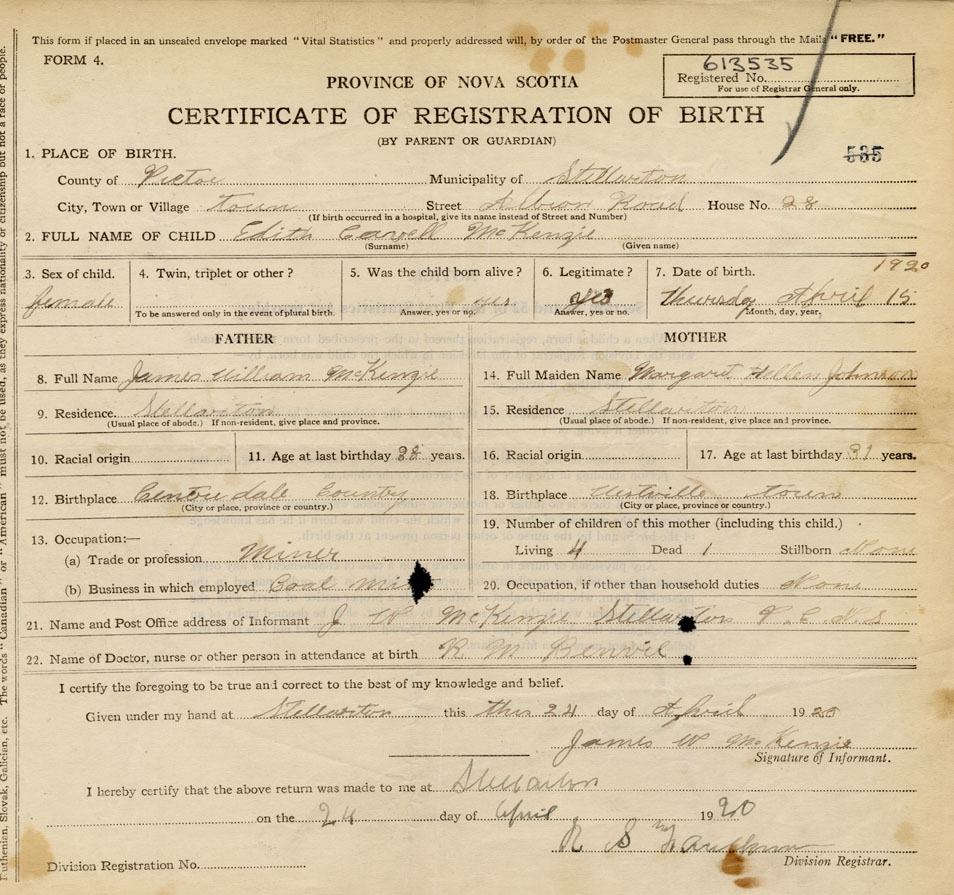 This form if placed in an unsealed envelope marked "Vital Statistics" and properly addressed will, by order of the Postmaster General pass through the Mails "FREE."
FORM 4.
613535
Registered No.
For use of Registrar General only.
PROVINCE OF NOVA SCOTIA
CERTIFICATE OF REGISTRATION OF BIRTH
(BY PARENT OR GUARDIAN)
535
1. PLACE OF BIRTH.
County of Pictou Municipality of Stellarton
City, Town or Village town Street Albion Road House No. 28
(If birth occurred in a hospital, give its name instead of Street and Number)
2. FULL NAME OF CHILD Edith Cavell McKenzie
(Surname) (Given name)
3. Sex of child. 4. Twin, triplet or other? 5. Was the child born alive? 6. Legitimate? 7. Date of birth. 1920
female yes yes Thursday April 15
To be answered only in the event of plural birth. Answer, yes or no. Answer, yes or no. Month, day, year.
FATHER MOTHER
8. Full Name James William McKenzie 14. Full Maiden Name Margaret Hellen Johnson
9. Residence Stellarton 15. Residence Stellarton
(Usual place of abode.) If non-resident, give place and province. (Usual place of abode.) If non-resident, give place and province.
10. Racial origin 11. Age at last birthday 38 years. 16. Racial origin 17. Age at last birthday 31 years.
12. Birthplace dale County 18. Birthplace town
(City or place, province or country.) (City or place, province or country.)
19. Number of children of this mother (including this child.)
13. Occupation:—
(a) Trade or profession Miner Living 4 Dead 1 Stillborn None
(b) Business in which employed Coal Mi 20. Occupation, if other than household duties None
21. Name and Post Office address of Informant J W McKenzie Stellarton
22. Name of Doctor, nurse or other person in attendance at birth R M
I certify the foregoing to be true and correct to the best of my knowledge and belief.
Given under my hand at Stellarton this this 24 day of April 1920
James W McKenzie
Signature of Informant.
I hereby certify that the above return was made to me at Stellarton
on the 24 day of April 1920
R S
Division Registration No. Division Registrar.
Ruthenian, Slovak, Galician, etc. The words "Canadian" or "American" must not be used, as they express nationality or citizenship but not a race or people.